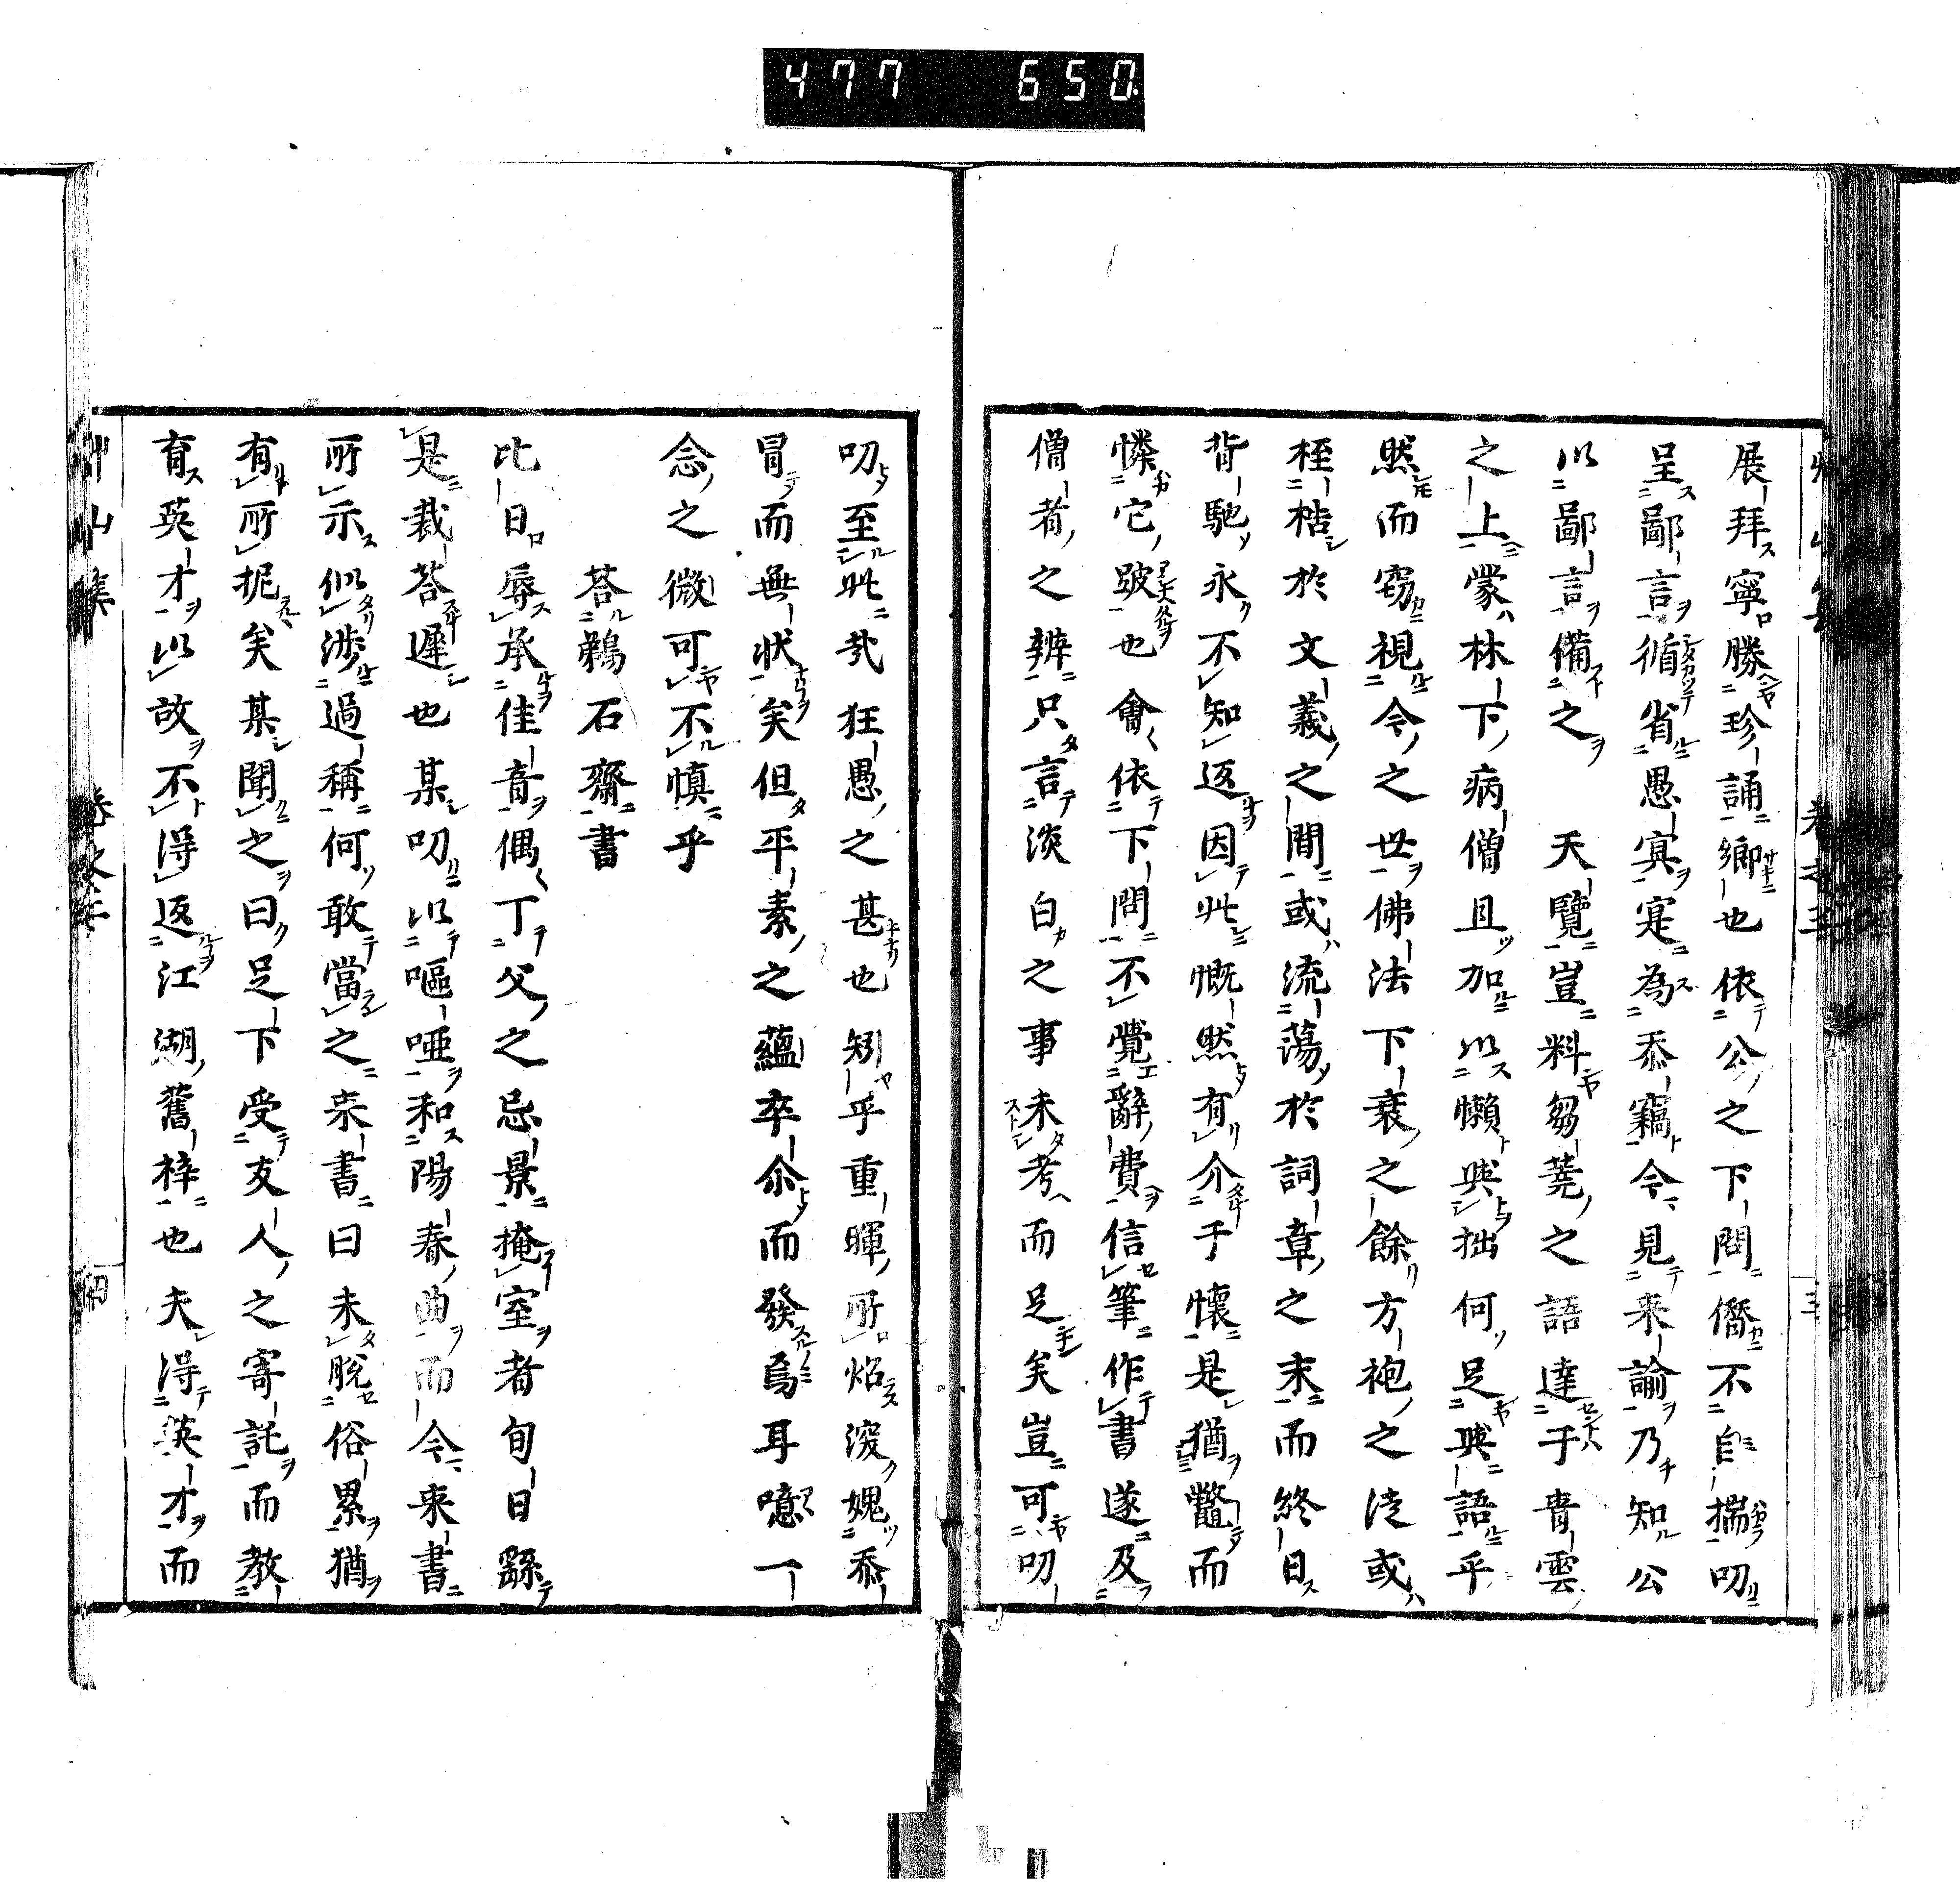 477 650
展拜寧勝珍誦鄉也依公之下問僭不自揣叨
呈鄙言循省愚寘寔為忝竊今見来諭乃知公
以鄙言備之　天覽豈料芻蕘之語達于青雲
之上蒙林下病僧且加以懶與拙何足與語乎
然而窃視今之世佛法下衰之餘方袍之徒或
桎梏於文義之間或流蕩於詞章之末而終日
背馳永不知返因此慨然有介于懷是猶鼈而
憐它跛也會依下問不覺辭費信筆作書遂及
僧者之辨只言淡白之事未考而足矣豈可叨
叨至此哉狂愚之甚也矧乎重暉所焰深媿忝
冒而無状矣但平素之蘊卒尒而發焉耳噫一
念之微可不慎乎
荅鵜石齋書
比日辱承佳音偶丁父之忌景掩室者旬日繇
是裁荅遲也某叨以嘔啞和陽春曲而今来書
所示似渉過稱何敢當之来書曰未脫俗累猶
有所抳矣某聞之曰足下受友人之寄託而教
育英才以故不得返江湖舊梓也夫得英才而
艸山集　卷之三　四